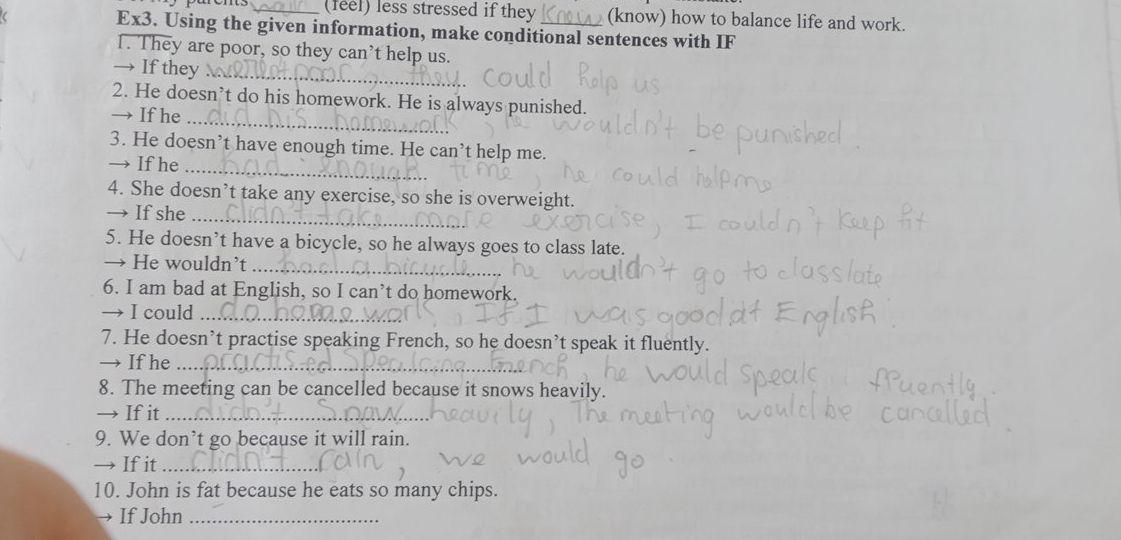 (feel) less stressed if they know (know) how to balance life and work.
Ex3. Using the given information, make conditional sentences with IF
1. They are poor, so they can't help us.
→ If they weren't poor, they could help us
2. He doesn't do his homework. He is always punished.
→ If he did his homework, he wouldn't be punished.
3. He doesn't have enough time. He can't help me.
→ If he had enough time, he could help me
4. She doesn't take any exercise, so she is overweight.
→ If she didn't take more exercise, I couldn't keep fit
5. He doesn't have a bicycle, so he always goes to class late.
→ He wouldn't had a bicycle, he wouldn't go to class late
6. I am bad at English, so I can't do homework.
→ I could do homework, If I was good at English.
7. He doesn't practise speaking French, so he doesn't speak it fluently.
→ If he practised speaking French, he would speak fluently.
8. The meeting can be cancelled because it snows heavily.
→ If it didn't snow heavily, The meeting would be cancelled.
9. We don't go because it will rain.
→ If it didn't rain, we would go.
10. John is fat because he eats so many chips.
→ If John